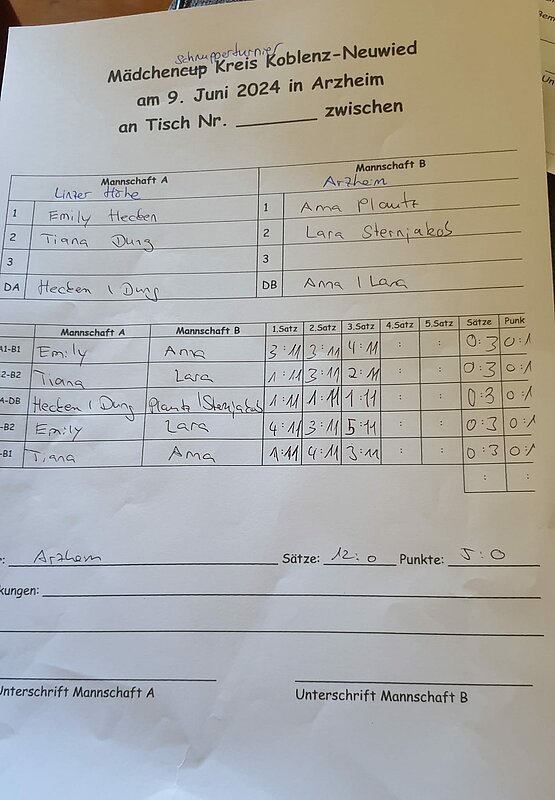 Schnupperturnier
Mädchencup Kreis Koblenz-Neuwied
am 9. Juni 2024 in Arzheim
an Tisch Nr. ________ zwischen
Mannschaft A Mannschaft B
Linzer Höhe Arzheim
1 Emily Hecken 1 Anna Plautz
2 Tiana Dung 2 Lara Sternjakob
3 3
DA Hecken / Dung DB Anna / Lara
Mannschaft A Mannschaft B 1.Satz 2.Satz 3.Satz 4.Satz 5.Satz Sätze Punk
A1-B1 Emily Anna 3:11 3:11 4:11 : : 0:3 0:1
2-B2 Tiana Lara 1:11 3:11 2:11 : : 0:3 0:1
A-DB Hecken / Dung Plautz / Sternjakob 1:11 1:11 1:11 : : 0:3 0:1
-B2 Emily Lara 4:11 3:11 5:11 : : 0:3 0:1
-B1 Tiana Anna 1:11 4:11 3:11 : : 0:3 0:1
: :
: Arzheim Sätze: 12:0 Punkte: 5:0
kungen:
Unterschrift Mannschaft A Unterschrift Mannschaft B